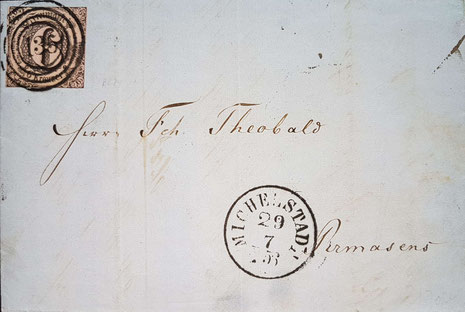 Herrn Fch. Theobald
MICHELSTADT
29
7
Pirmasens